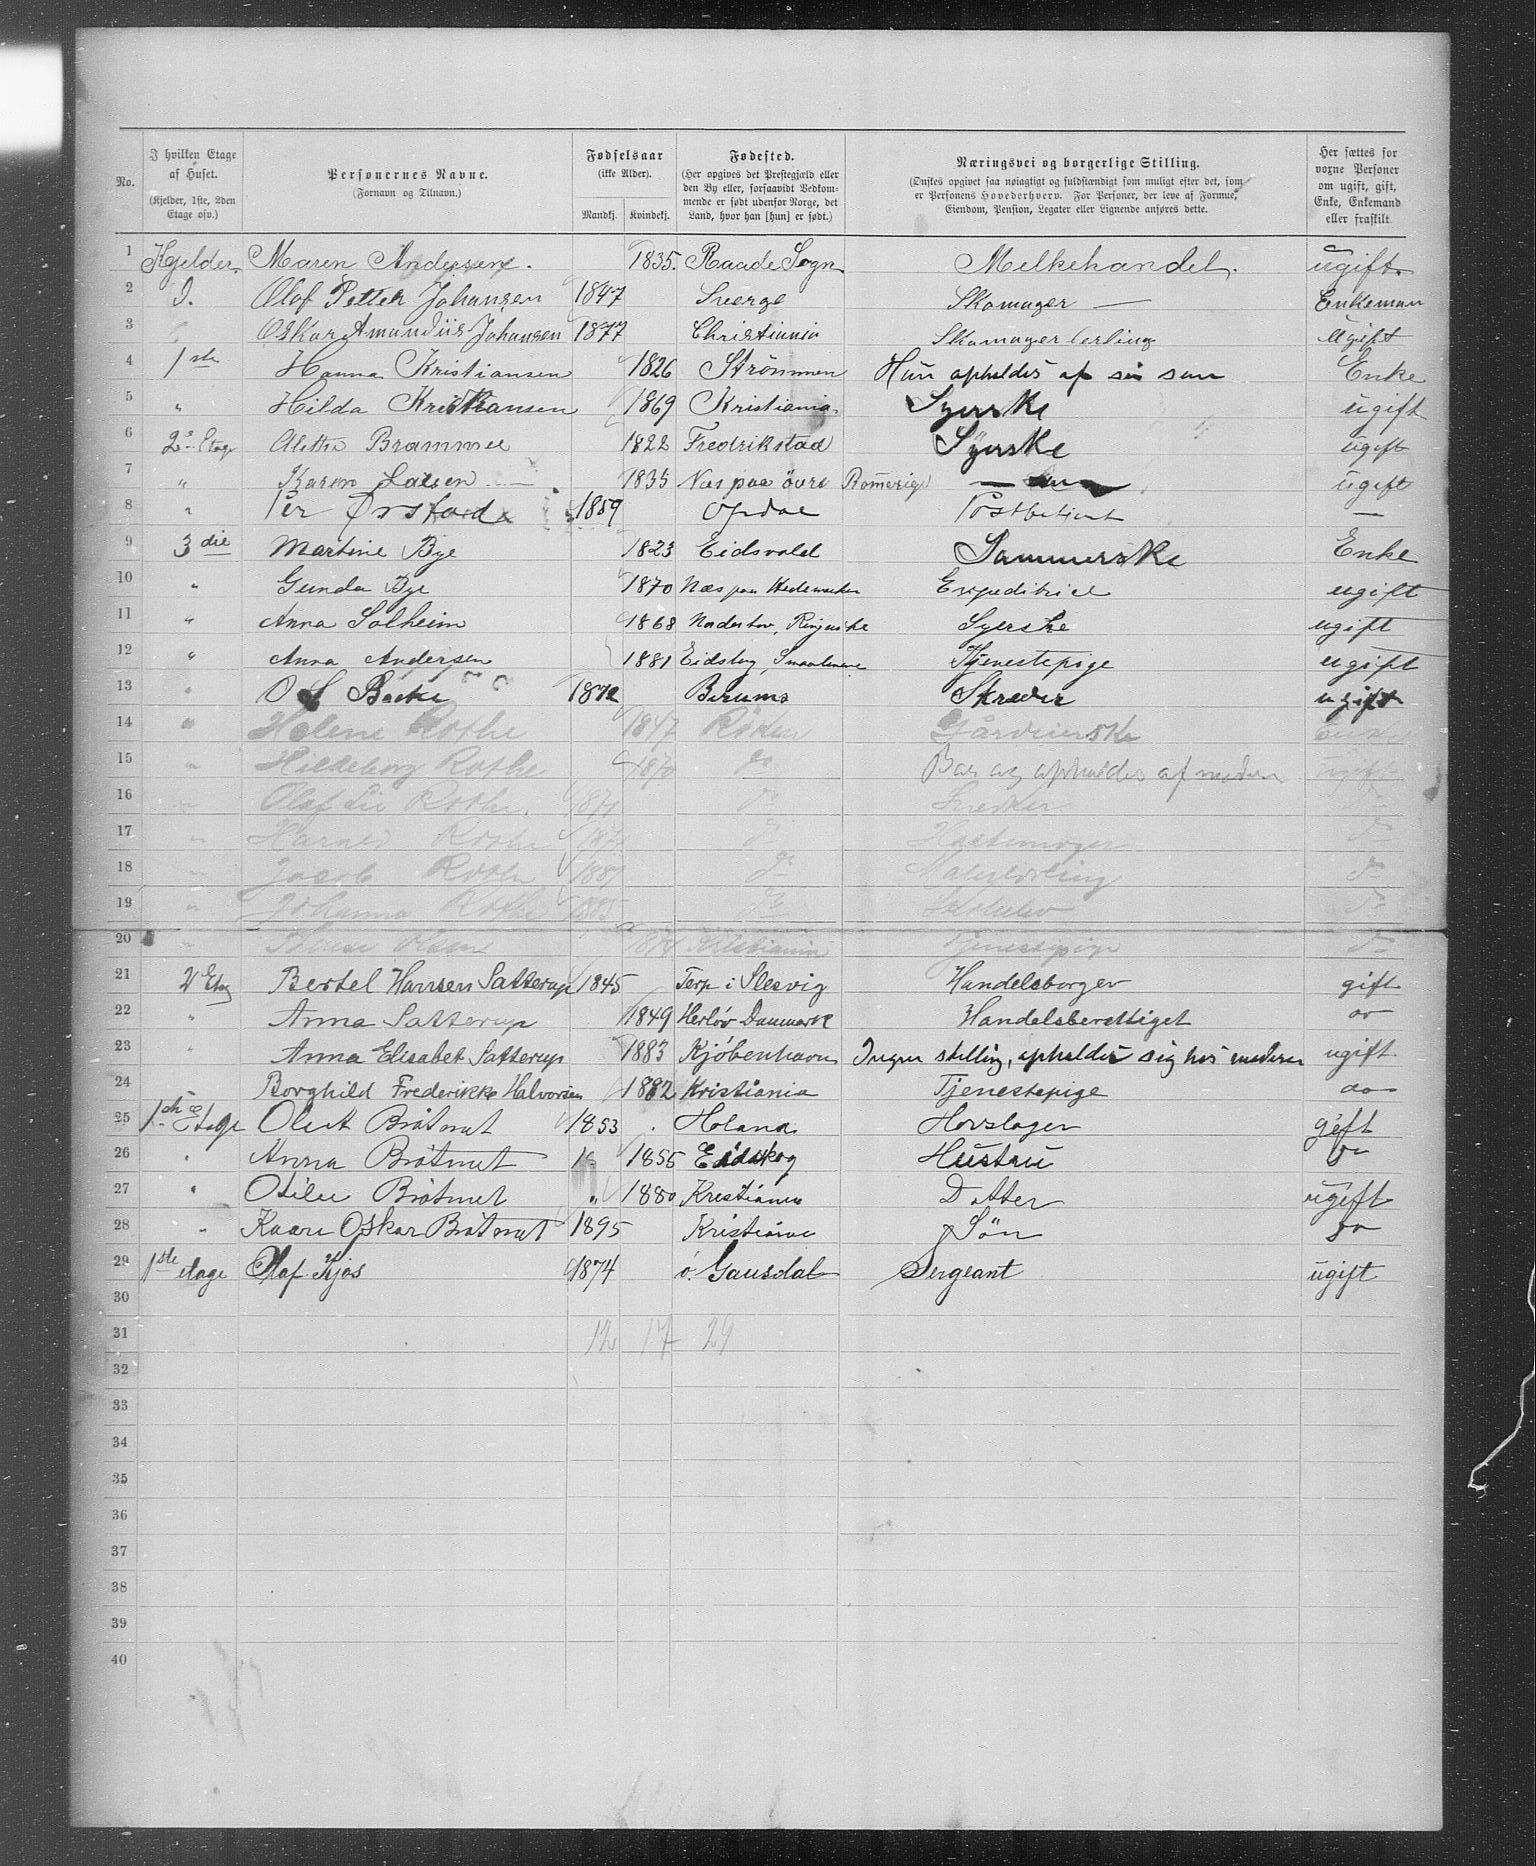 No. | I hvilken Etage af Huset. (Kjelder, 1ste, 2den Etage osv.) | Personernes Navne. (Fornavn og Tilnavn.) | Fødselsaar (ikke Alder). Mandkj. Kvindekj. | Fødested. (Her opgives det Prestegjæld eller den By eller, forsaavidt Vedkommende er født udenfor Norge, det Land, hvor han [hun] er født.) | Næringsvei og borgerlige Stilling. (Ønskes opgivet saa nøiagtigt og fuldstændigt som muligt efter det, som er Personens Hovederhverv. For Personer, der leve af Formue, Eiendom, Pension, Legater eller Lignende anføres dette. | Her sættes for voxne Personer om ugift, gift, Enke, Enkemand eller fraskilt.
1 Kjelder. Maren Andersen. 1835. Raade Sogn Melkehandel. ugift.
2 Olof Petter Johansen 1847 Sverge Skomager — Enkeman
3 Oskar Amundiis Johansen 1877 Christiania Skomager lerling Ugift
4 1ste Hanna Kristiansen 1826 Strömmen Hun opholdes af sin søn Enke
5 " Hilda Kristiansen 1869 Kristiania Syerske ugift
6 2 Etag Brammee 1822 Fredrikstad Syerske ugift
7 " Karen Larsen 1835 Næs paa övre Romerige ugift
8 " Per Ørstad 1859 Opdal Postbetient —
9 3die Martine Bye 1823 Eidsvold Sømmerske Enke
10 " Gunda Bye 1870 Næs paa Hedemarken Expeditrice ugift
11 " Anna Solheim 1868 Ringerike Syerske ugift
12 " Anna Andersen 1881 Eidsberg, Smaalenene Tjenestepige ugift
13 " O S Bække 1872 Berums Skreder ugift
14 " Helene Rothe 1847 Røken Enke
15 " Hildeborg Rothe 1870 do opholdes af moderen ugift
16 " Olaf Rothe. do Snedker do
17 " Harald Rothe do do
18 " Jacob Rothe 1881 do Malerlerling do
19 " Johannes Rothe 1885 do do
20 " Olsen Kristiania Tjenestepige do
21 2 Etg Bertel Hansen Satterup 1845 Terp i Slesvig Handelsborger gift
22 " Anna Satterup 1849 Herløv Danmark Handelsberettiget do
23 " Anna Elisabet Satterup 1883 Kjøbenhavn Ingen stilling, opholder sig hos moderen ugift
24 Borghild Frederikke Halvorsen 1882 Kristiania Tjenestepige do
25 1ste Etage Braatnut 1853 Holand Hovslager gift
26 " Anna Bråtnut 1855 Eidskog Hustru do
27 " Otilie Bråtnut " 1880 Kristiania Datter ugift
28 " Kaare Oskar Bråtnut 1895 Kristiania Søn do
29 1ste etage Olaf Kjos 1874 ö. Gausdal Sergeant ugift
30
31 12 17 29
32
33
34
35
36
37
38
39
40